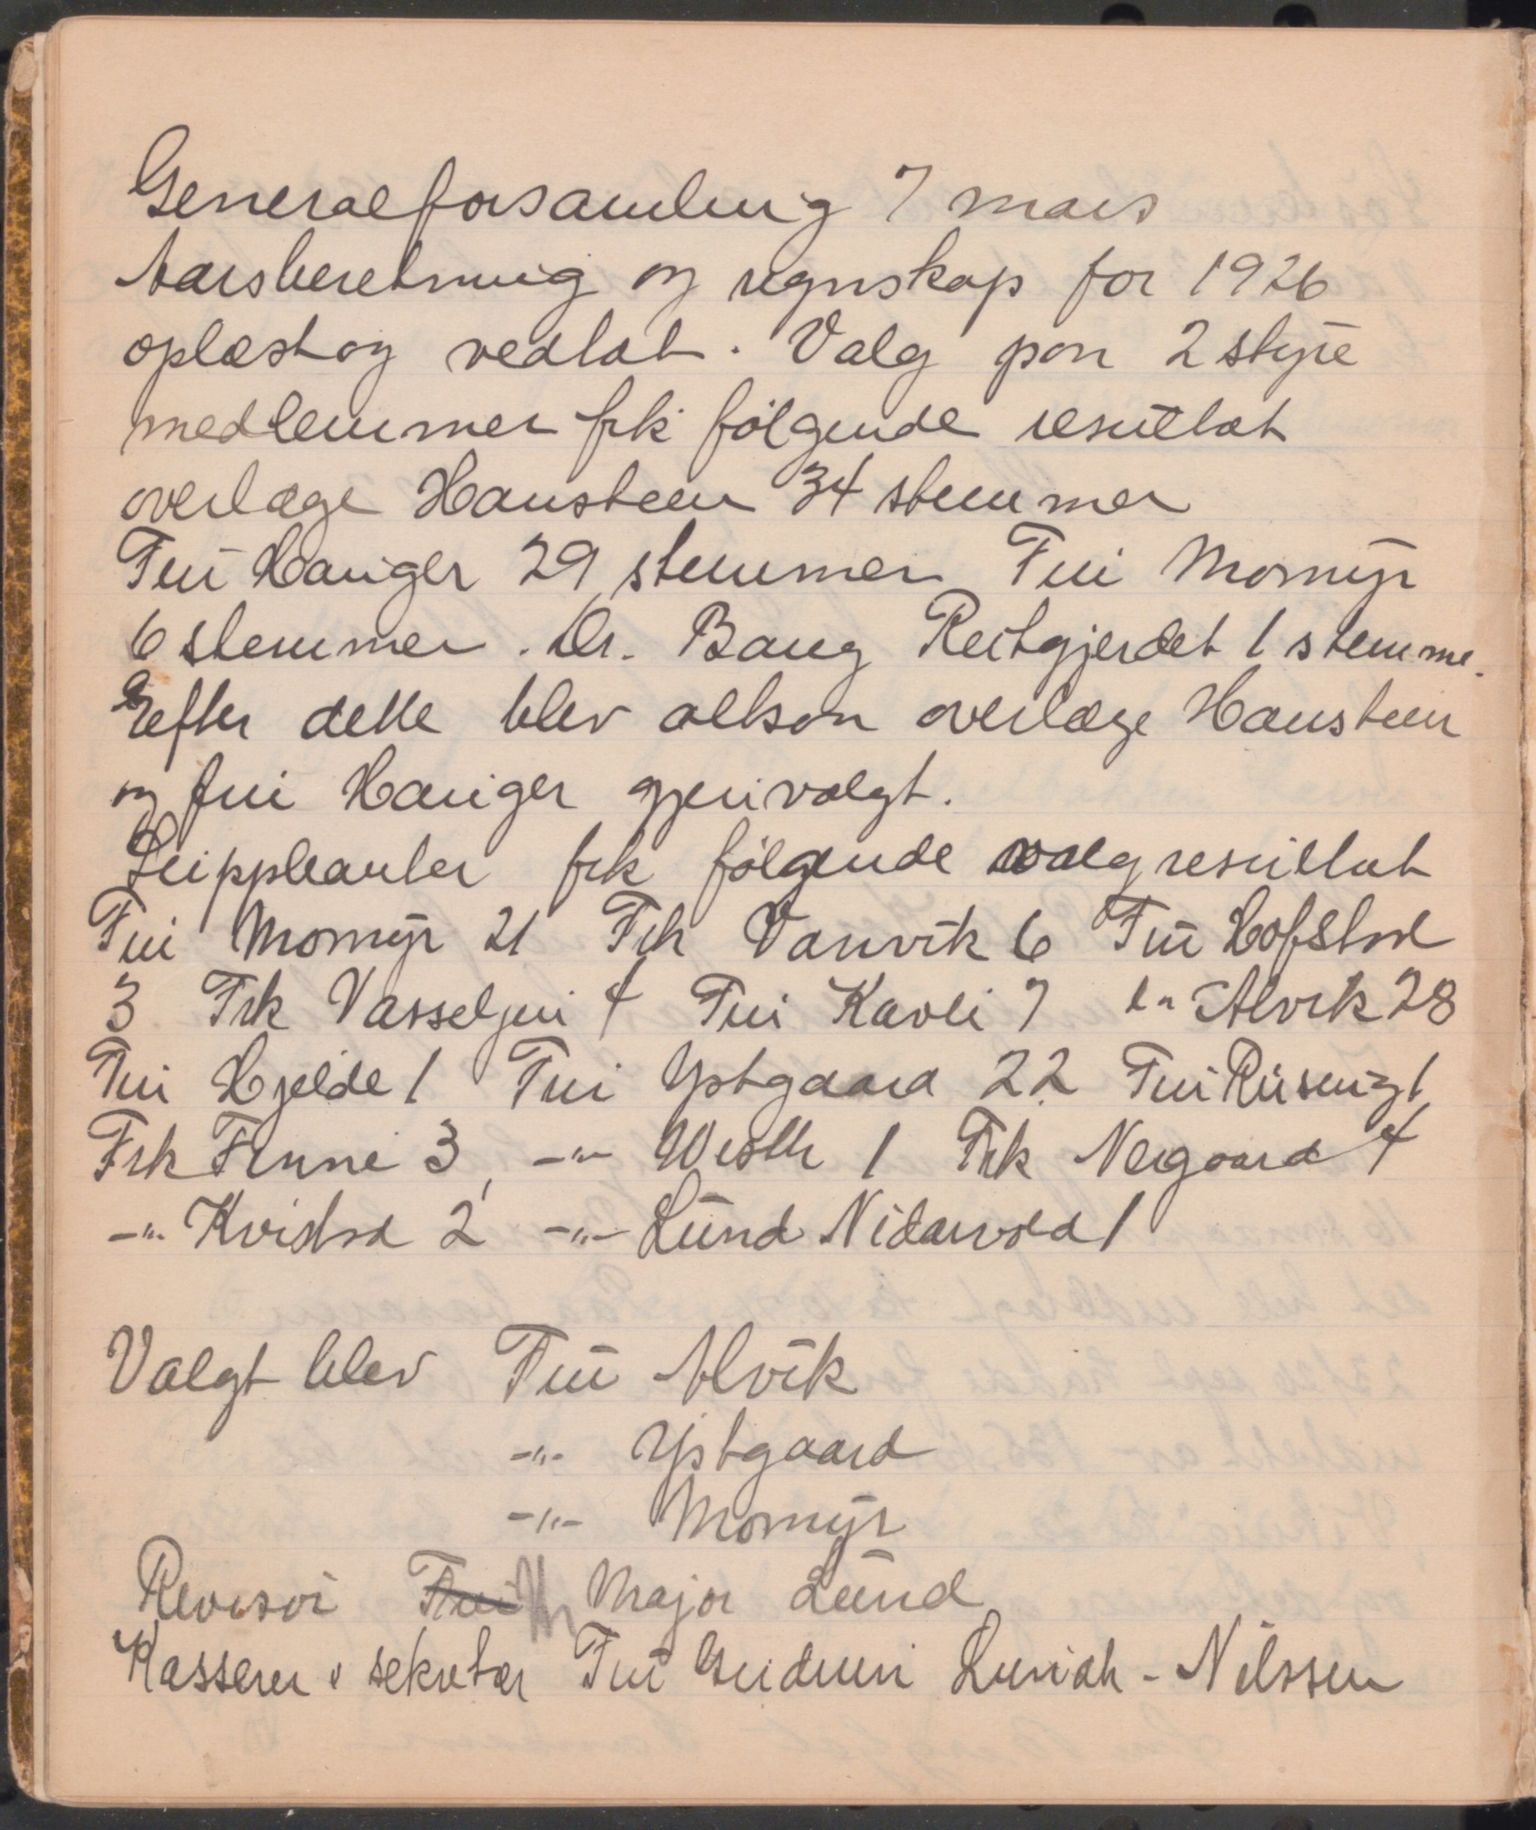 Generalforsamling 7 mars
Aarsberetning og regnskap for 1926
oplæst og vedtat. Valg paa 2 styre
medlemmer fik følgende resultat
overlæge Hansteen 34 stemmer
Fru Hauger 29 stemmer Fru Momyr
6 stemmer. Dr. Bang Reitgjerdet 1 stemme.
Eefter dette blev altsaa overlæge Hansteen
og fru Hauger gjenvalgt.
Suppleanter fik følgende valgresultat
Fru Momyr 21 Frk Vanvik 6 Fru Hofstad
3 Frk Vasseljen 4 Fru Kavli 7 Alvik 28
Fru Hjelde 1 Fru Ystgaard 22 Fru 1
Frk Finne 3 -"- Weste 1 Frk Nergaard 4
-"- Kvistad 2 -"- Lund Nidarvold 1
Valgt blev Fru Alvik
-"- Ystgaard
-"- Momyr
Revisor Fru Hr Major Lund
Kasserer & sekretær Fru Gudrun - Nilssen